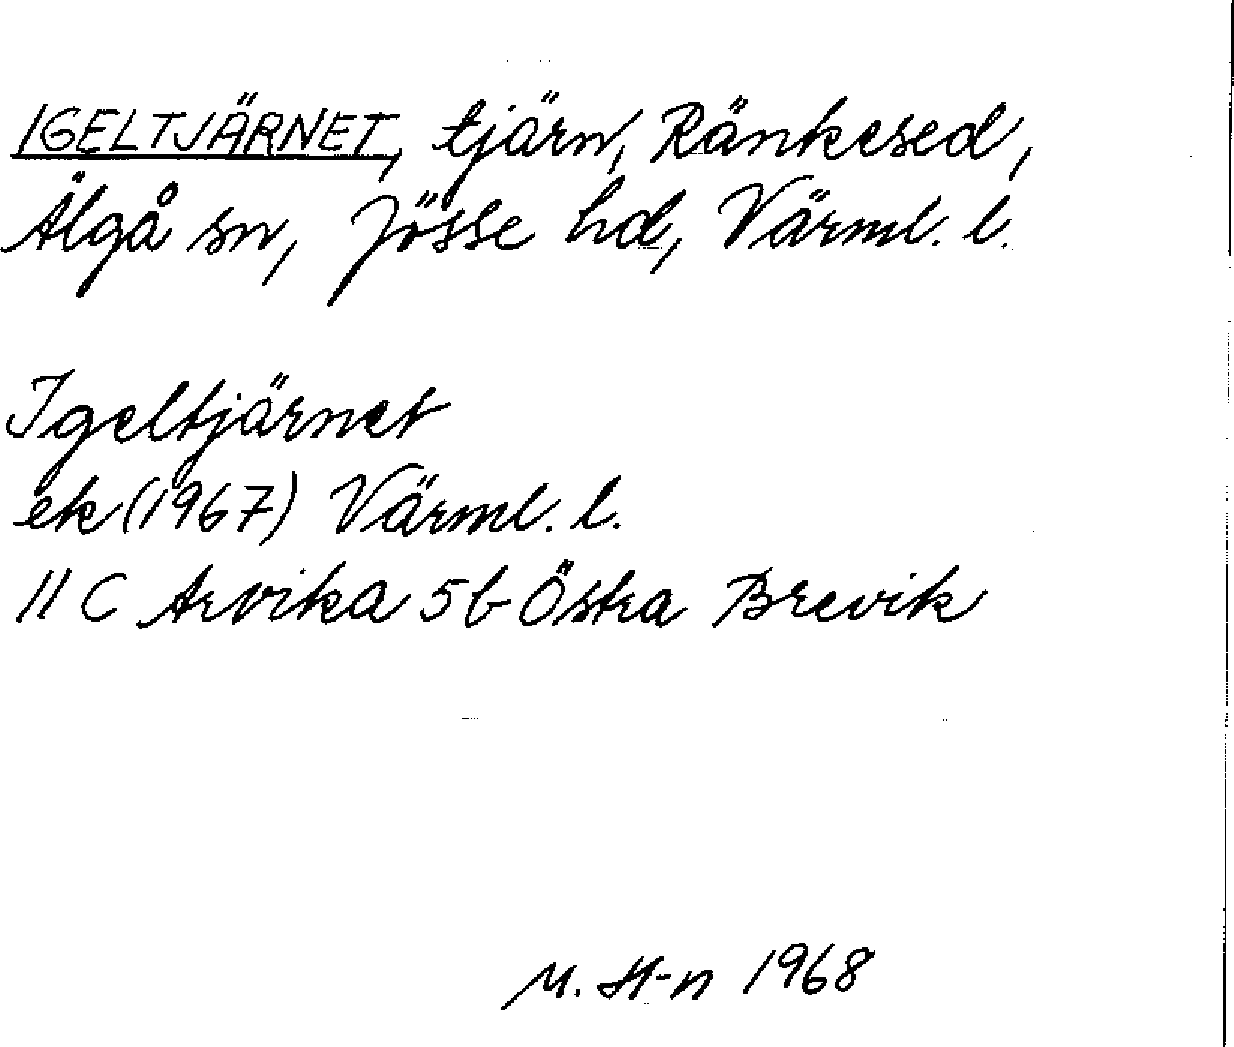 IGELTJÄRNET, tjärn, Ränkesed,
Älgå sn, Jösse hd, Värml. l.
Igeltjärnet
ek (1967) Värml. l.
11 C Arvika 5b Östra Brevik
M. H-n 1968